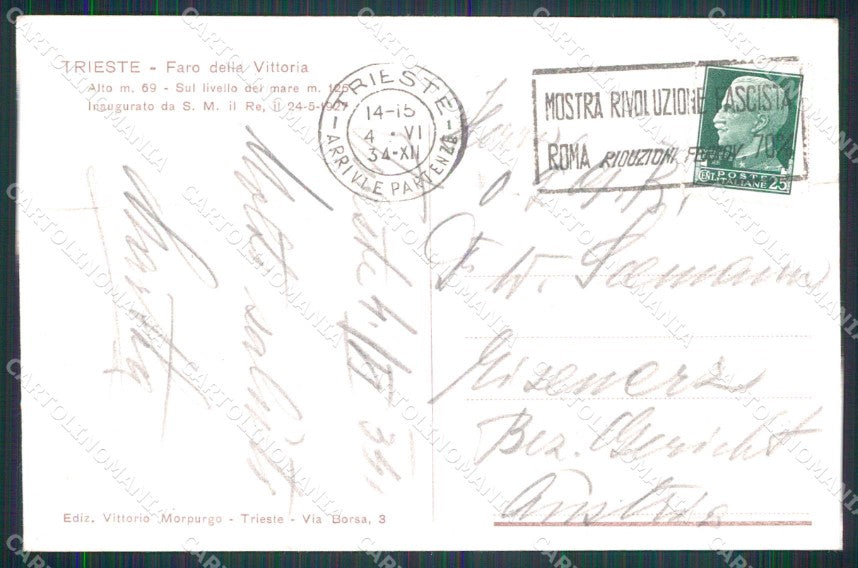 TRIESTE - Faro della Vittoria
Alto m. 69 - Sul livello del mare m. 126
Inaugurato da S. M. il Re, il 24-5-1927
TRIESTE
14-15
4 · VI
34-XII
ARRIVI E PARTENZE
MOSTRA RIVOLUZIONE FASCISTA
ROMA RIDUZIONI FERROV 70%
POSTE
ITALIANE
CENT. 25
4/VI 34.
Molti saluti
Eisenerz
Bez. Gericht
Austria
Ediz. Vittorio Morpurgo - Trieste - Via Borsa, 3
CARTOLINOMANIA